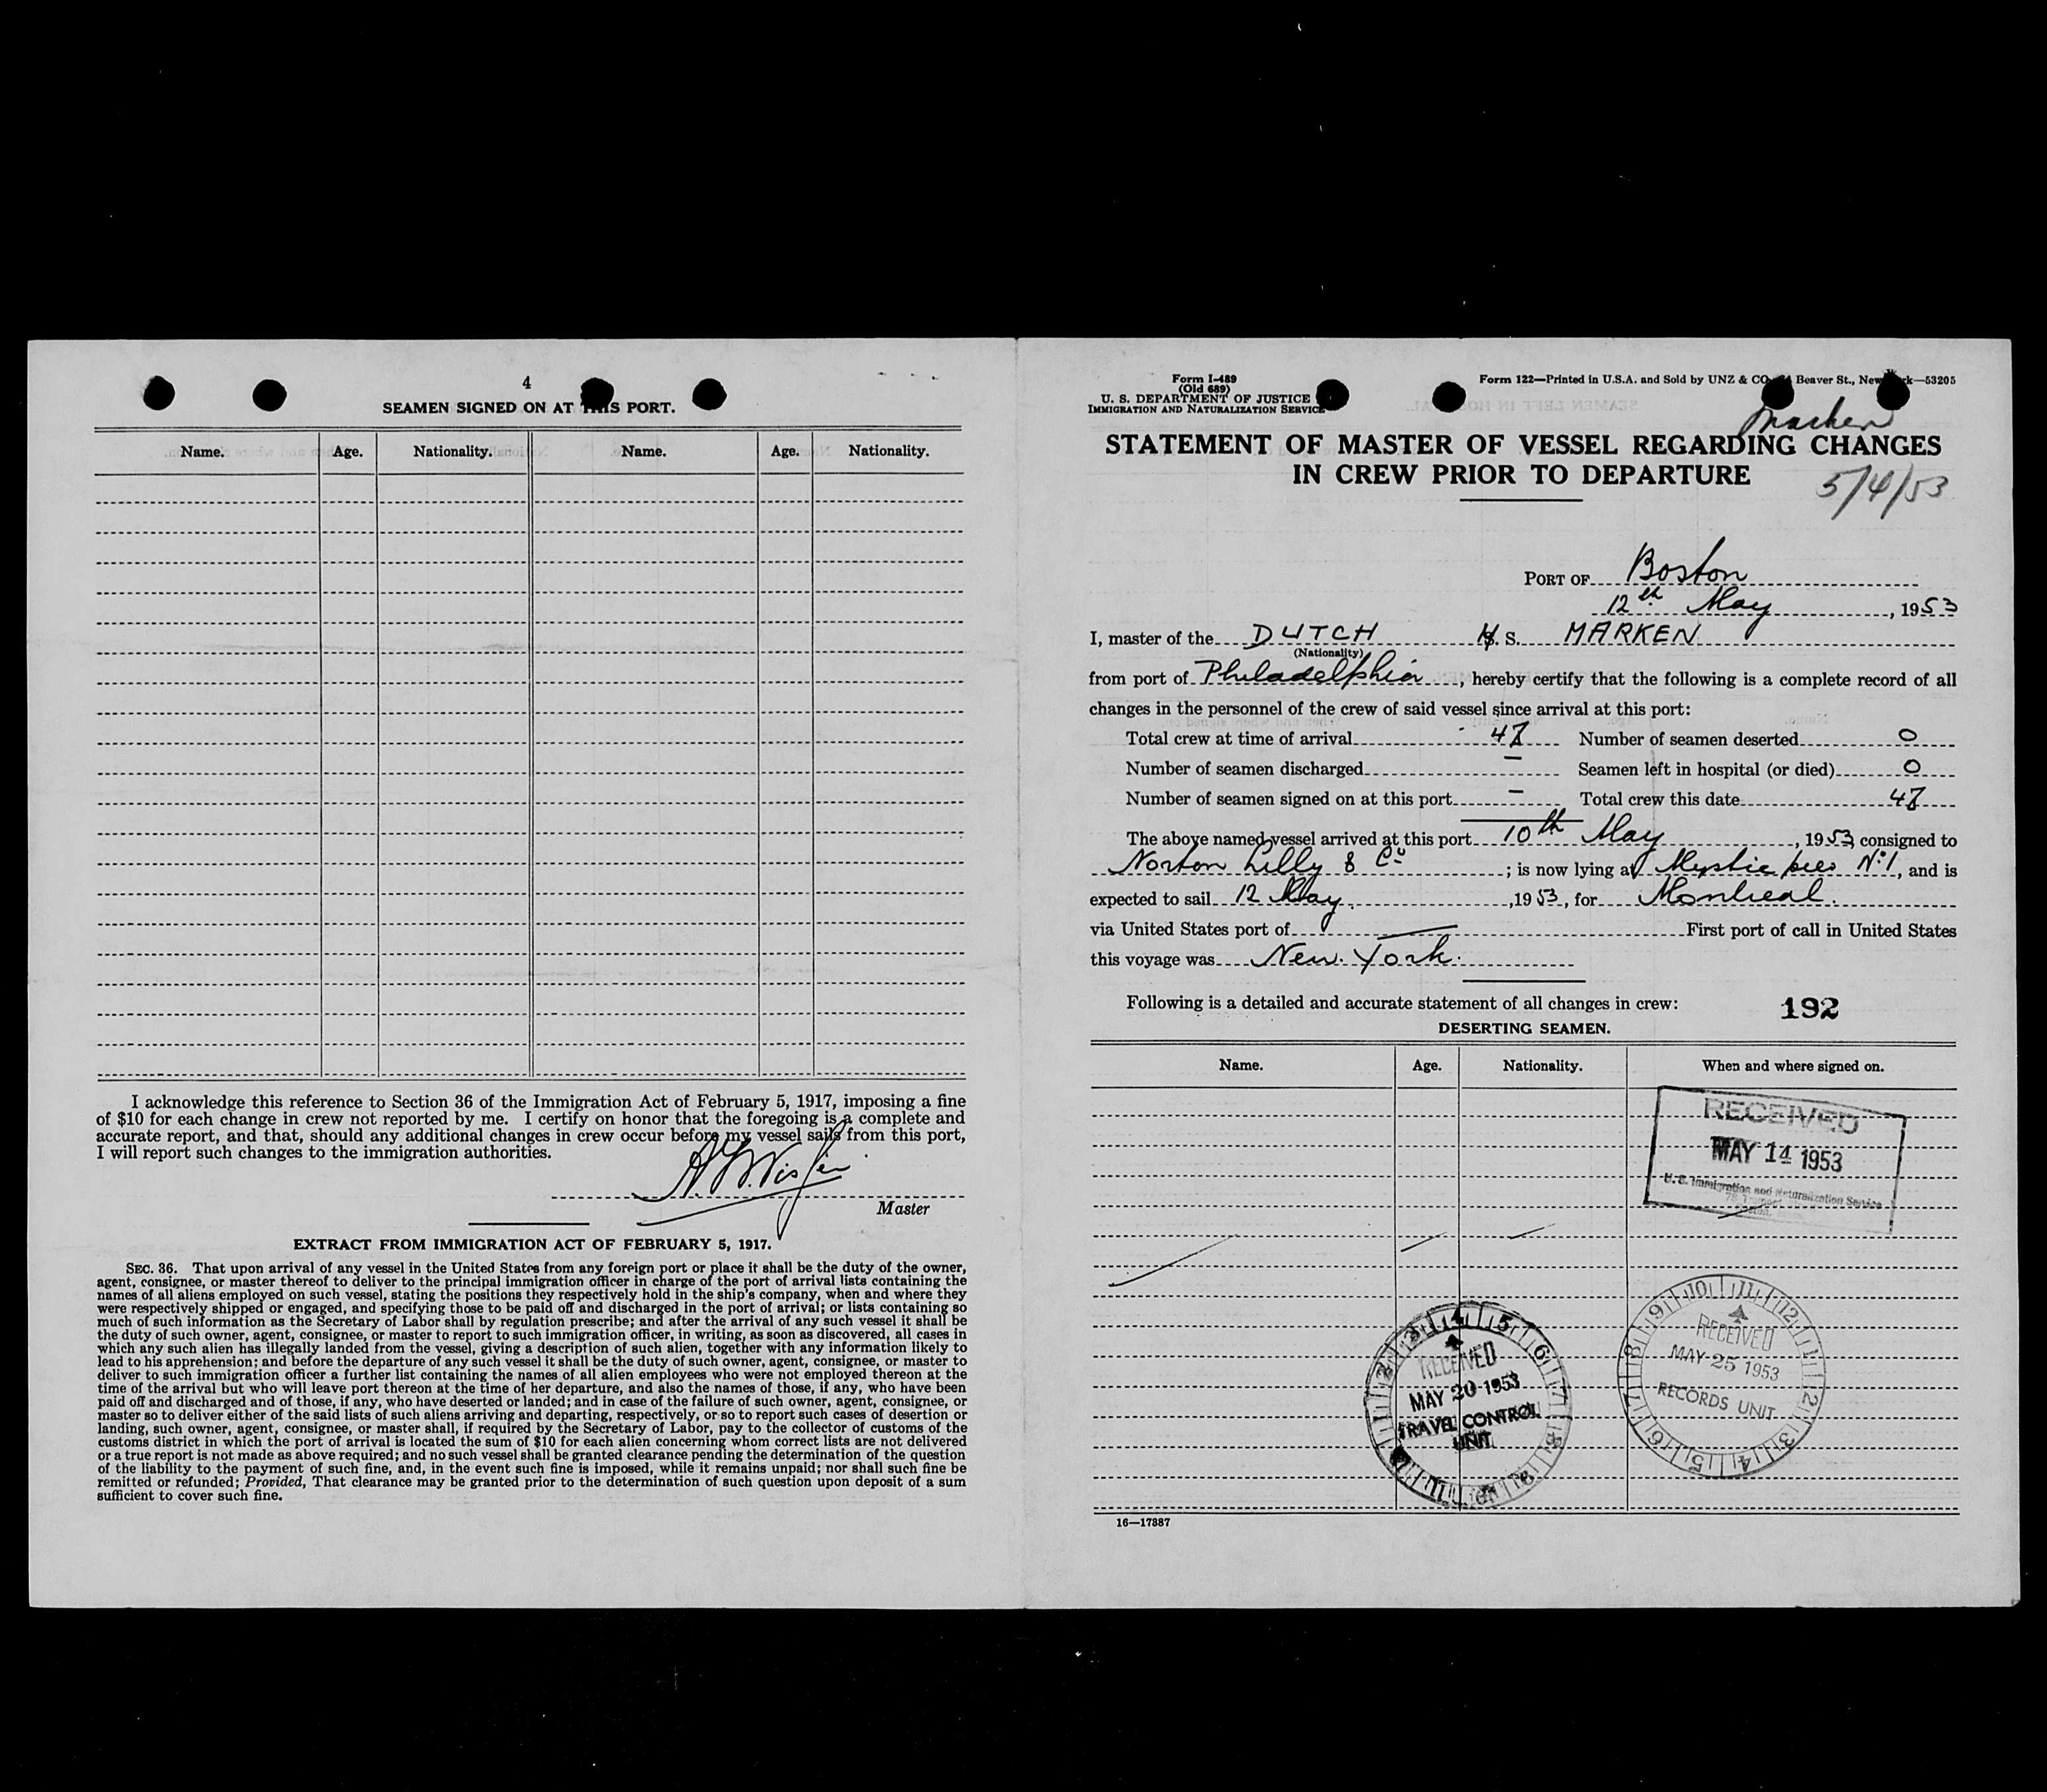 4
SEAMEN SIGNED ON AT THIS PORT.
Name. Age. Nationality. Name. Age. Nationality.
I acknowledge this reference to Section 36 of the Immigration Act of February 5, 1917, imposing a fine
of $10 for each change in crew not reported by me. I certify on honor that the foregoing is a complete and
accurate report, and that, should any additional changes in crew occur before my vessel sails from this port,
I will report such changes to the immigration authorities.
Master
EXTRACT FROM IMMIGRATION ACT OF FEBRUARY 5, 1917.
SEC. 36. That upon arrival of any vessel in the United States from any foreign port or place it shall be the duty of the owner,
agent, consignee, or master thereof to deliver to the principal immigration officer in charge of the port of arrival lists containing the
names of all aliens employed on such vessel, stating the positions they respectively hold in the ship's company, when and where they
were respectively shipped or engaged, and specifying those to be paid off and discharged in the port of arrival; or lists containing so
much of such information as the Secretary of Labor shall by regulation prescribe; and after the arrival of any such vessel it shall be
the duty of such owner, agent, consignee, or master to report to such immigration officer, in writing, as soon as discovered, all cases in
which any such alien has illegally landed from the vessel, giving a description of such alien, together with any information likely to
lead to his apprehension; and before the departure of any such vessel it shall be the duty of such owner, agent, consignee, or master to
deliver to such immigration officer a further list containing the names of all alien employees who were not employed thereon at the
time of the arrival but who will leave port thereon at the time of her departure, and also the names of those, if any, who have been
paid off and discharged and of those, if any, who have deserted or landed; and in case of the failure of such owner, agent, consignee, or
master so to deliver either of the said lists of such aliens arriving and departing, respectively, or so to report such cases of desertion or
landing, such owner, agent, consignee, or master shall, if required by the Secretary of Labor, pay to the collector of customs of the
customs district in which the port of arrival is located the sum of $10 for each alien concerning whom correct lists are not delivered
or a true report is not made as above required; and no such vessel shall be granted clearance pending the determination of the question
of the liability to the payment of such fine, and, in the event such fine is imposed, while it remains unpaid; nor shall such fine be
remitted or refunded; Provided, That clearance may be granted prior to the determination of such question upon deposit of a sum
sufficient to cover such fine.
Form I-489
(Old 689)
U. S. DEPARTMENT OF JUSTICE
IMMIGRATION AND NATURALIZATION SERVICE
Form 122—Printed in U.S.A. and Sold by UNZ & CO Beaver St., New York—53205
Marken
STATEMENT OF MASTER OF VESSEL REGARDING CHANGES
IN CREW PRIOR TO DEPARTURE
5/4/53
PORT OF Boston
12th May, 1953
I, master of the DUTCH S. S. MARKEN
(Nationality)
from port of Philadelphia, hereby certify that the following is a complete record of all
changes in the personnel of the crew of said vessel since arrival at this port:
Total crew at time of arrival 47 Number of seamen deserted 0
Number of seamen discharged — Seamen left in hospital (or died) 0
Number of seamen signed on at this port — Total crew this date 47
The above named vessel arrived at this port 10th May, 1953 consigned to
Norton Lilly & Co; is now lying at Mystic pier No 1, and is
expected to sail 12 May, 1953, for Montreal.
via United States port of — First port of call in United States
this voyage was New York.
Following is a detailed and accurate statement of all changes in crew:
192
DESERTING SEAMEN.
Name. Age. Nationality. When and where signed on.
RECEIVED
MAY 14 1953
U. S. Immigration and Naturalization Service
RECEIVED
MAY 20 1953
TRAVEL CONTROL
UNIT
RECEIVED
MAY 25 1953
RECORDS UNIT
16—17887